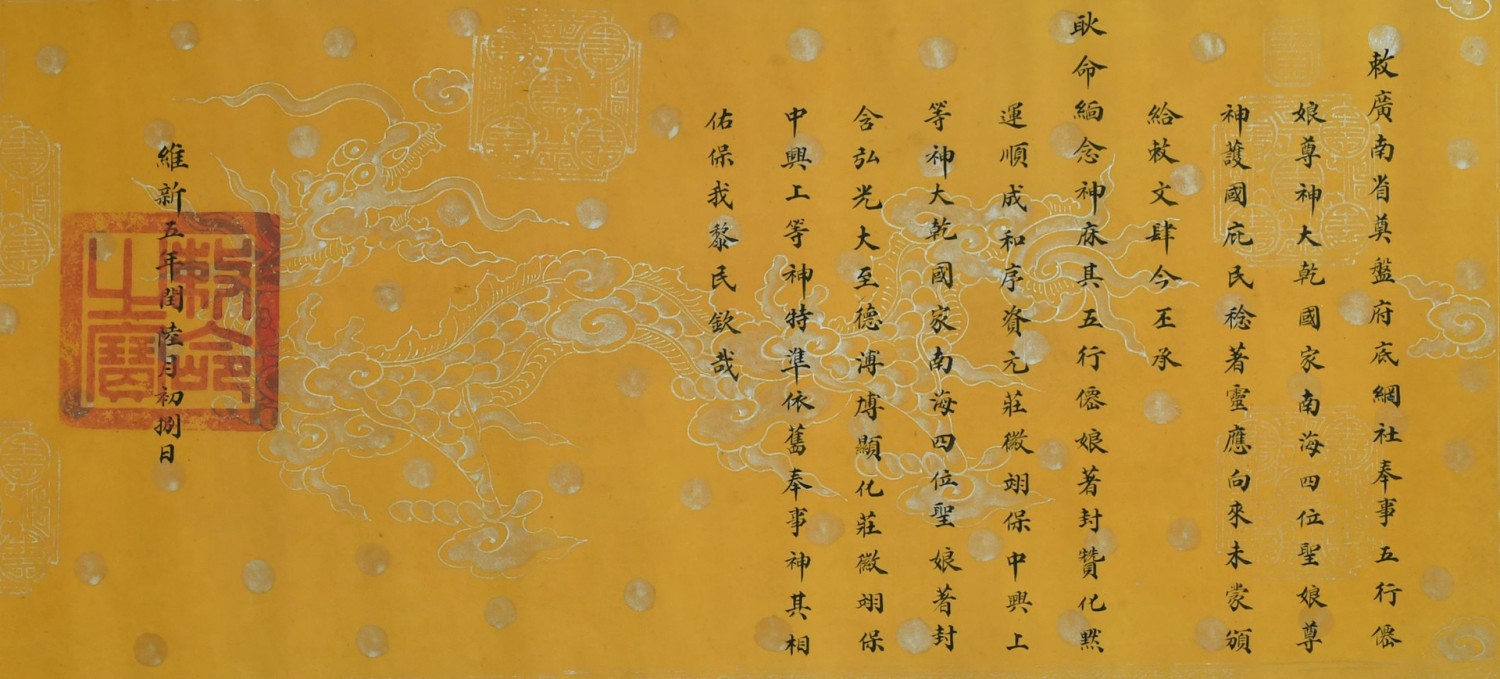 敕廣南省奠盤府底網社奉事五行僊
娘尊神大乾國家南海四位聖娘尊
神護國庇民稔著靈應向來未蒙頒
給敕文肆今丕承
耿命緬念神庥其五行僊娘著封贊化黙
運順成和序資元莊徽翊保中興上
等神大乾國家南海四位聖娘著封
含弘光大至德溥博顯化莊徽翊保
中興上等神特準依舊奉事神其相
佑保我黎民欽哉
維新五年閏陸月初捌日
敕命之寶